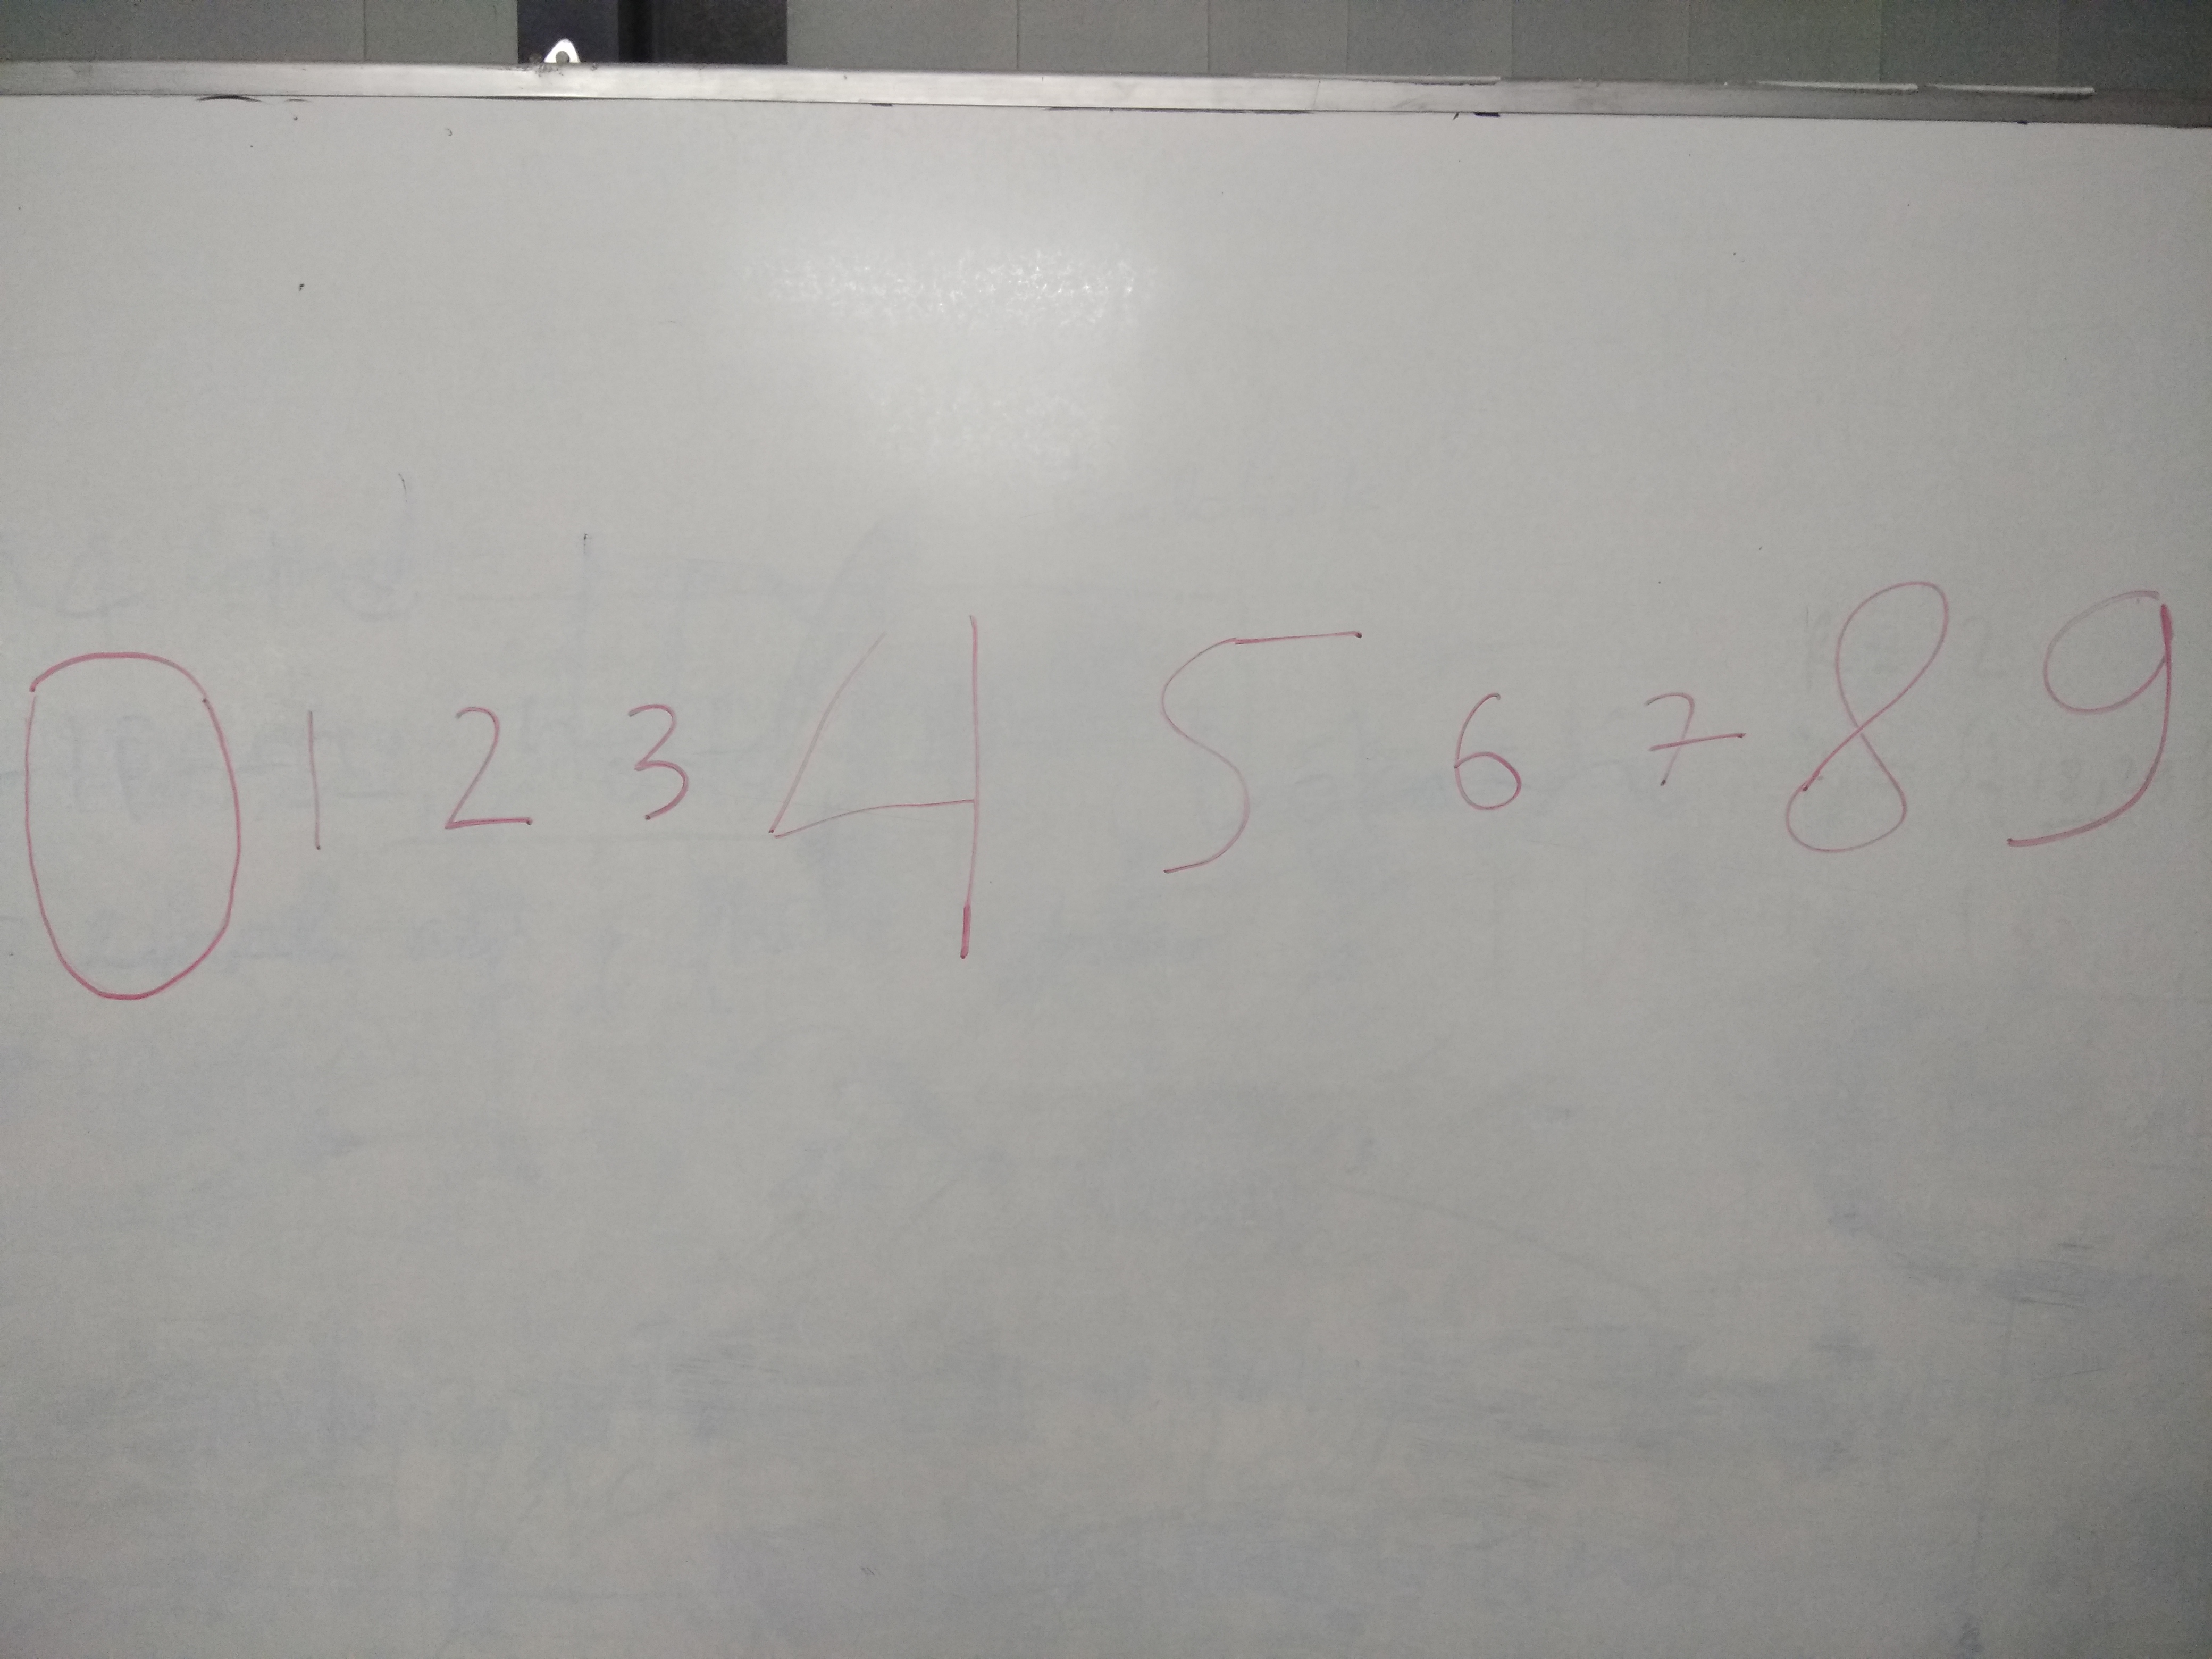 0 1 2 3 4 5 6 7 8 9